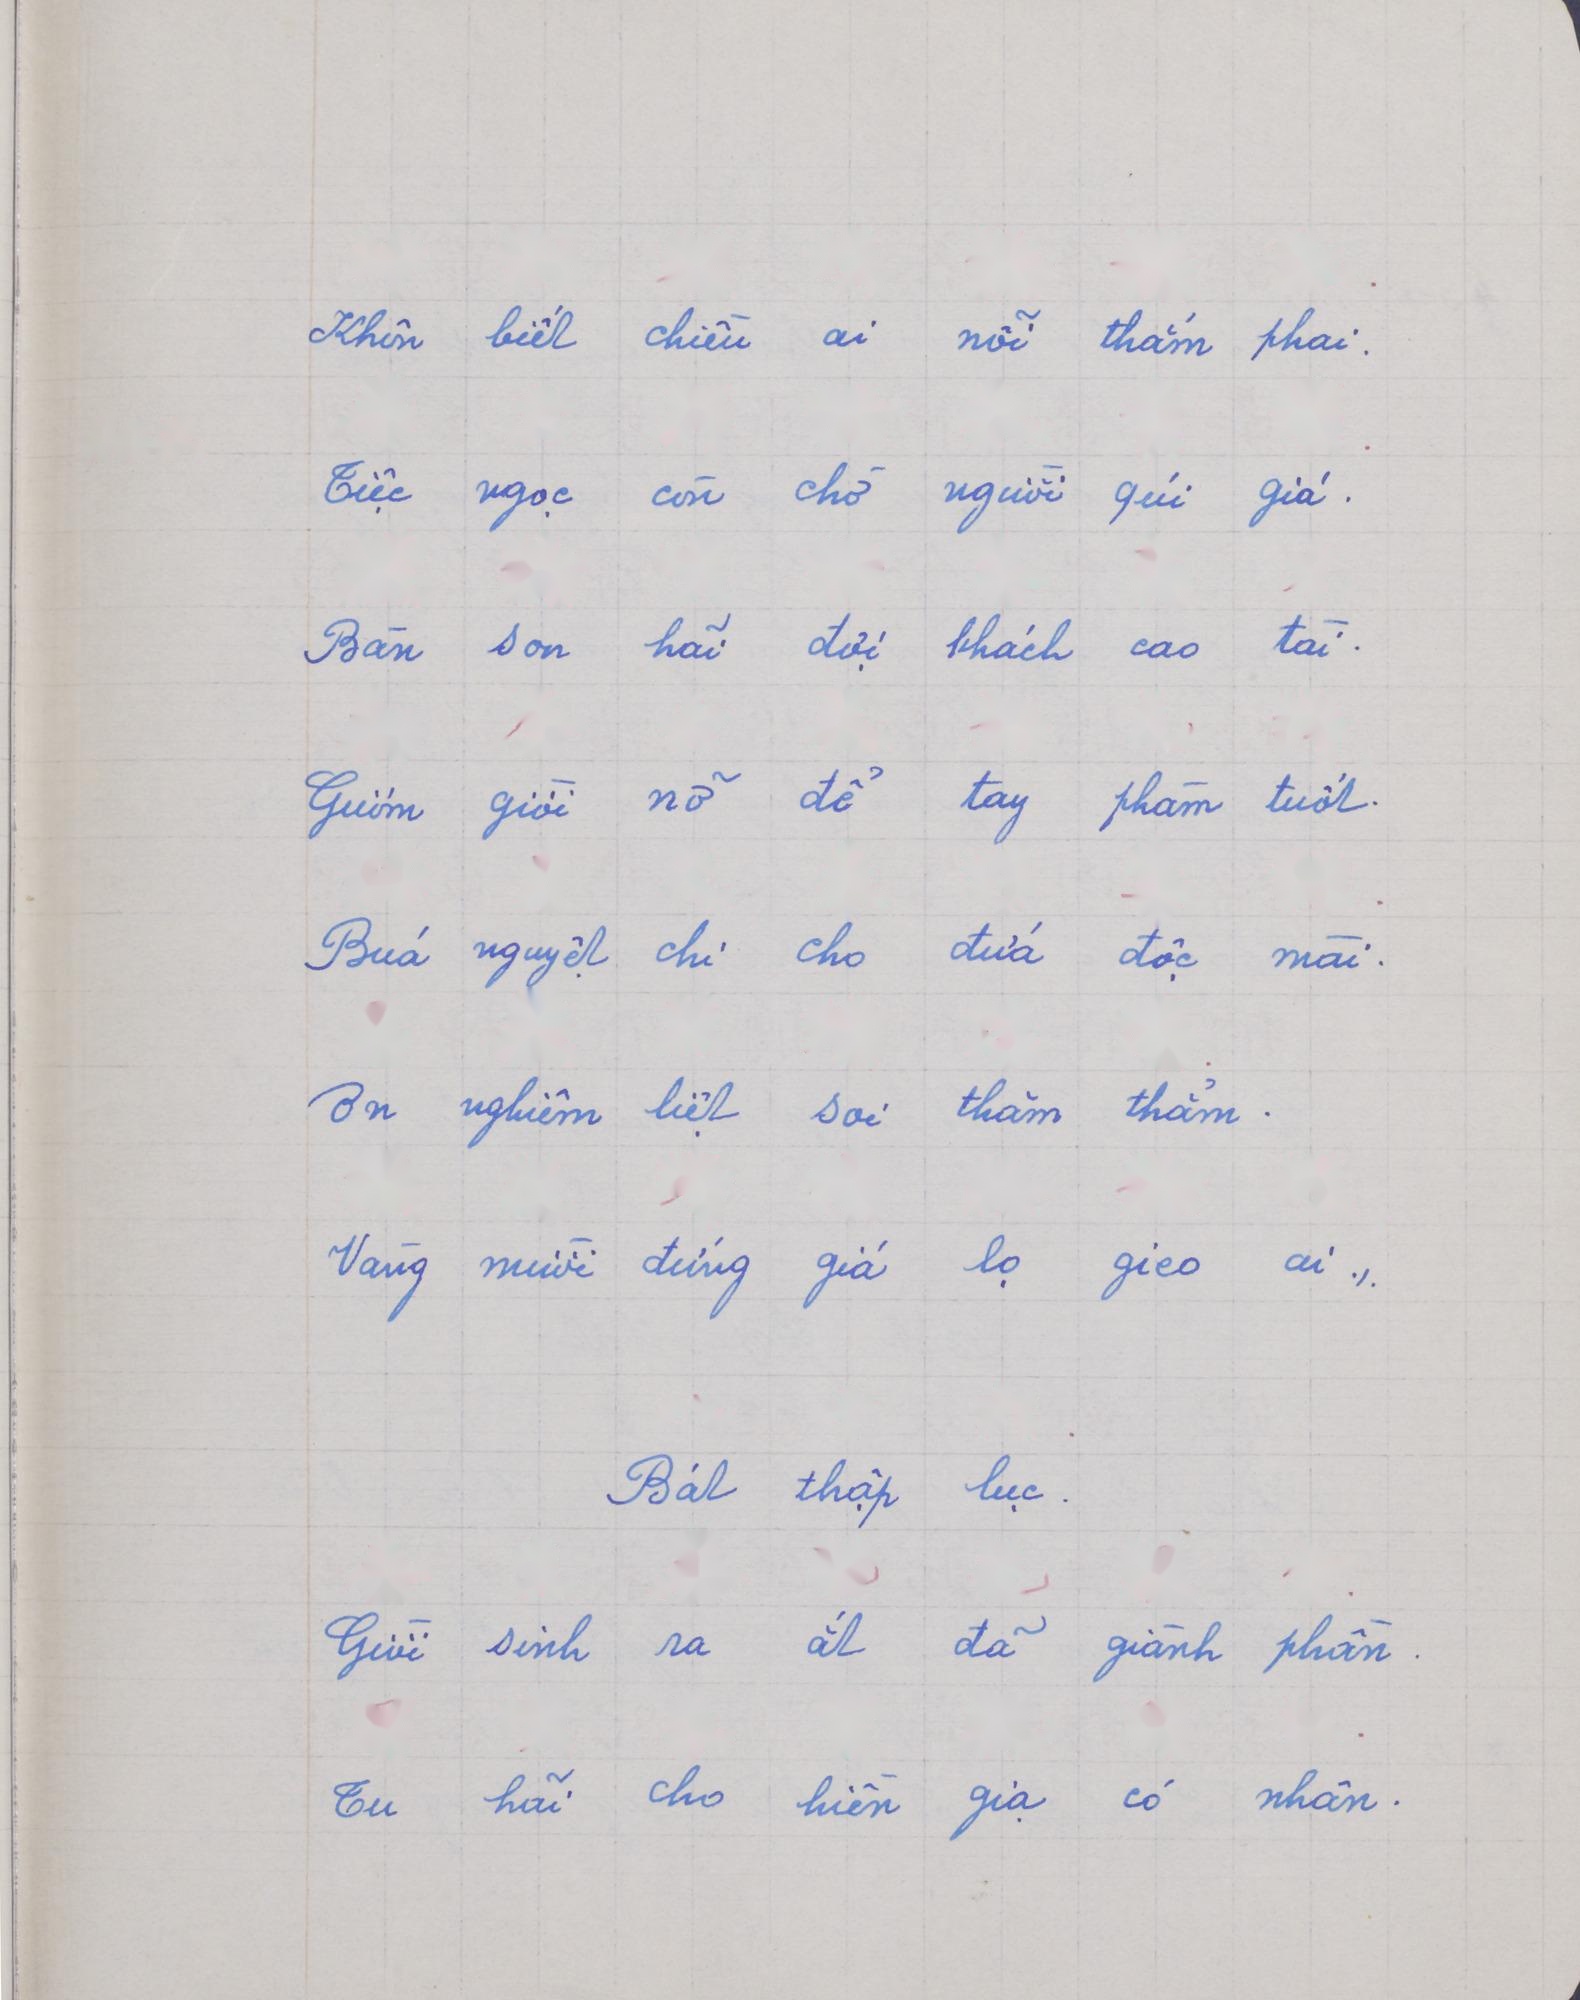 Khôn biết chiều ai nỗi thắm phai.
Tiệc ngọc còn chờ người quí giá.
Bàn son hãi đợi khách cao tài.
Gươm giời nỡ để tay phàm tuốt.
Búa nguyệt chi cho đứa độc mài.
Ơn nghiêm liệt soi thăm thẳm.
Vàng mười đứng giá lọ gieo ai ./.
Bát thập lục.
Giời sinh ra ắt đã giành phần.
Tu hãi cho hiền gia có nhân.